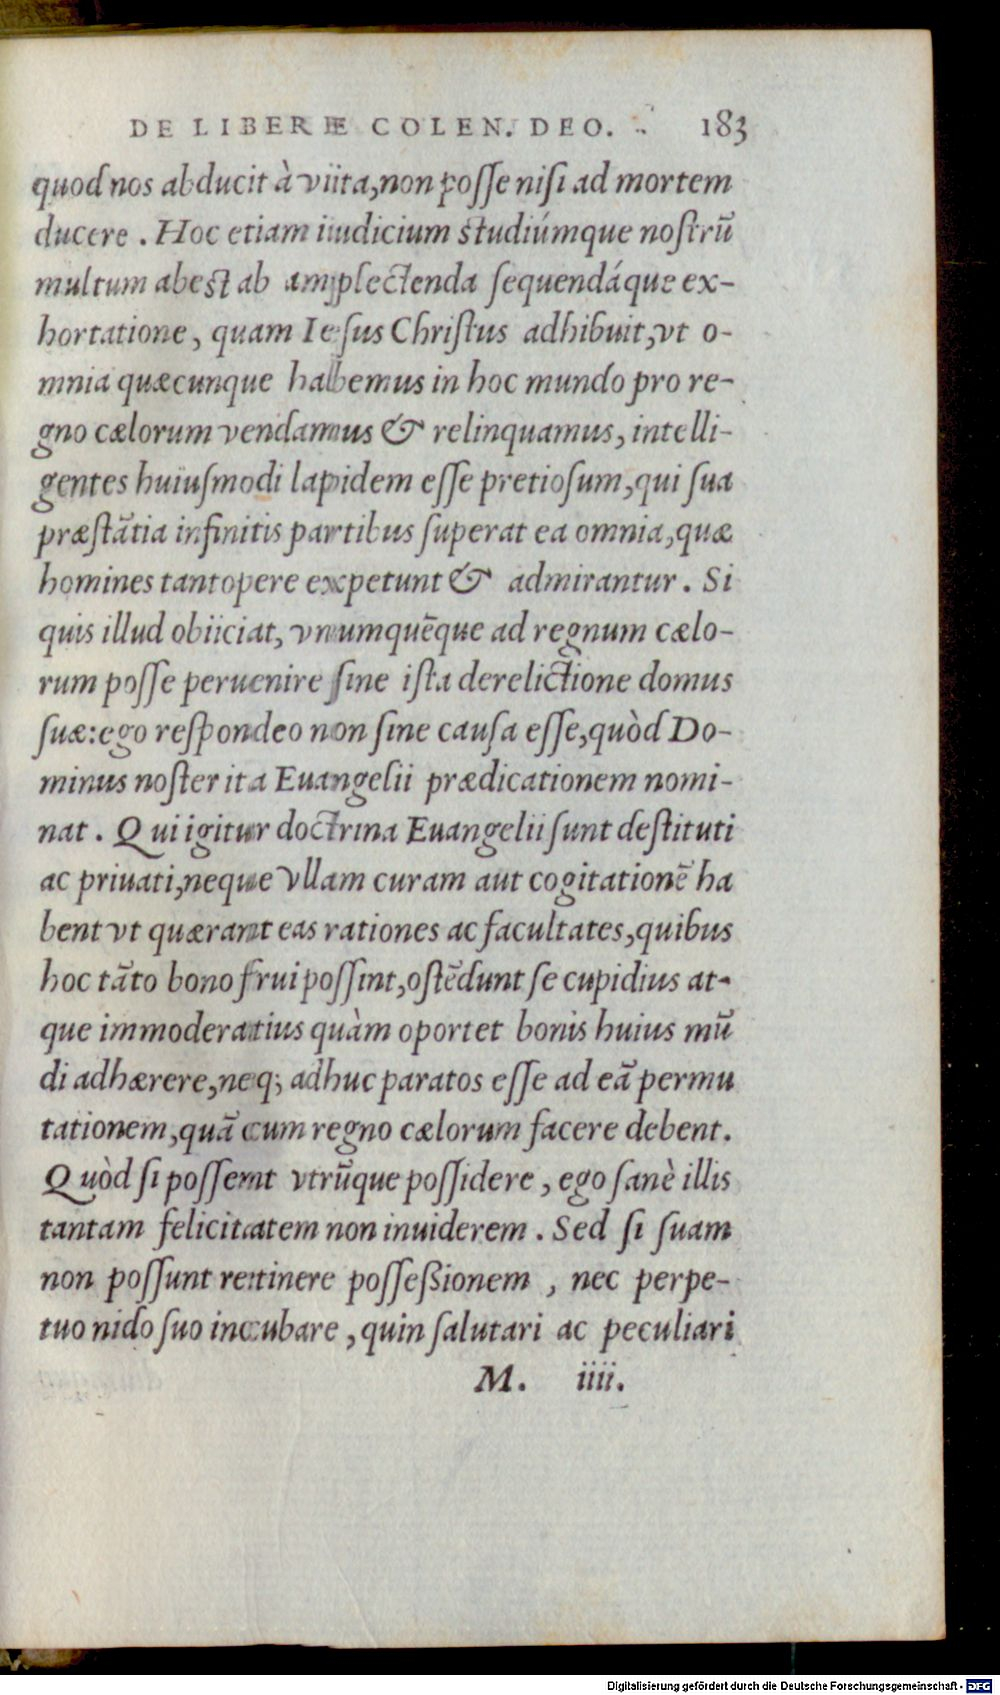 DE LIBERE COLEN. DEO. 183
quod nos abducit à vita, non posse nisi ad mortem
ducere. Hoc etiam iudicium studiúmque nostrũ
multum abest ab amplectenda sequendáque ex-
hortatione, quam Iesus Christus adhibuit, vt o-
mnia quæcunque habemus in hoc mundo pro re-
gno cælorum vendamus & relinquamus, intelli-
gentes huiusmodi lapidem esse pretiosum, qui sua
præstãtia infinitis partibus superat ea omnia, quæ
homines tantopere expetunt & admirantur. Si
quis illud obiiciat, vnumquẽque ad regnum cælo-
rum posse peruenire sine ista derelictione domus
suæ: ego respondeo non sine causa esse, quòd Do-
minus noster ita Euangelii prædicationem nomi-
nat. Qui igitur doctrina Euangelii sunt destituti
ac priuati, neque vllam curam aut cogitationẽ ha
bent vt quærant eas rationes ac facultates, quibus
hoc tãto bono frui possint, ostẽdunt se cupidius at-
que immoderatius quàm oportet bonis huius mũ
di adhærere, neq; adhuc paratos esse ad eã permu
tationem, quã cum regno cælorum facere debent.
Quòd si possent vtrũque possidere, ego sanè illis
tantam felicitatem non inuiderem. Sed si suam
non possunt retinere posseßionem, nec perpe-
tuo nido suo incubare, quin salutari ac peculiari
M. iiii.
Digitalisierung gefördert durch die Deutsche Forschungsgemeinschaft - DFG